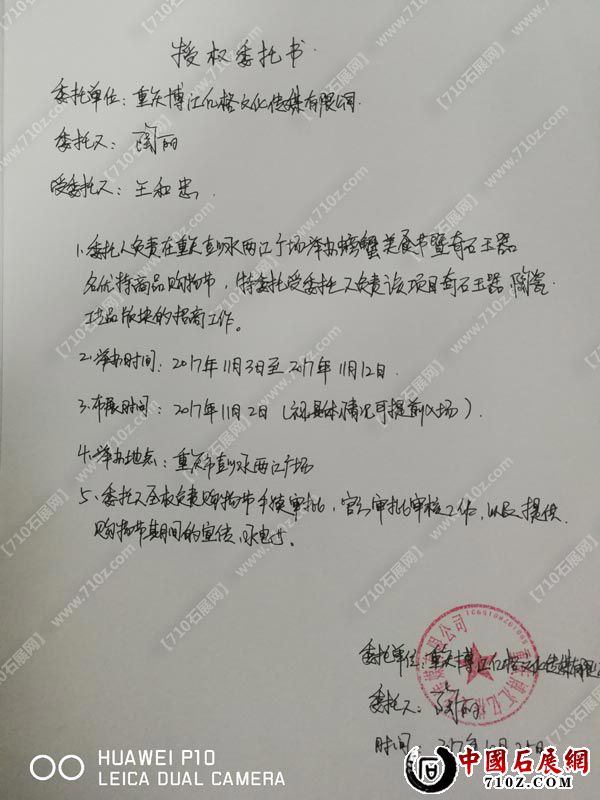 授权委托书
委托单位：重庆博江亿格文化传媒有限公司
委托人：陶丽
受委托人：王和忠
1.委托人负责在重庆彭水两江广场举办螃蟹美食节暨奇石玉器
名优特商品购物节，特委托受委托人负责该项目奇石玉器、陶瓷
工艺品版块的招商工作。
2.举办时间：2017年11月3日至2017年11月12日
3.布展时间：2017年11月2日（视具体情况可提前入场）
4.举办地点：重庆市彭水两江广场
5.委托人全权负责购物节手续审批，审批审核工作，以及提供
购物节期间的宣传、水电。
委托单位：重庆博江亿格文化传媒有限公
委托人：陶丽
时间：2017年
HUAWEI P10
LEICA DUAL CAMERA
中國石展網
710z.com
【710石展网】www.710z.com